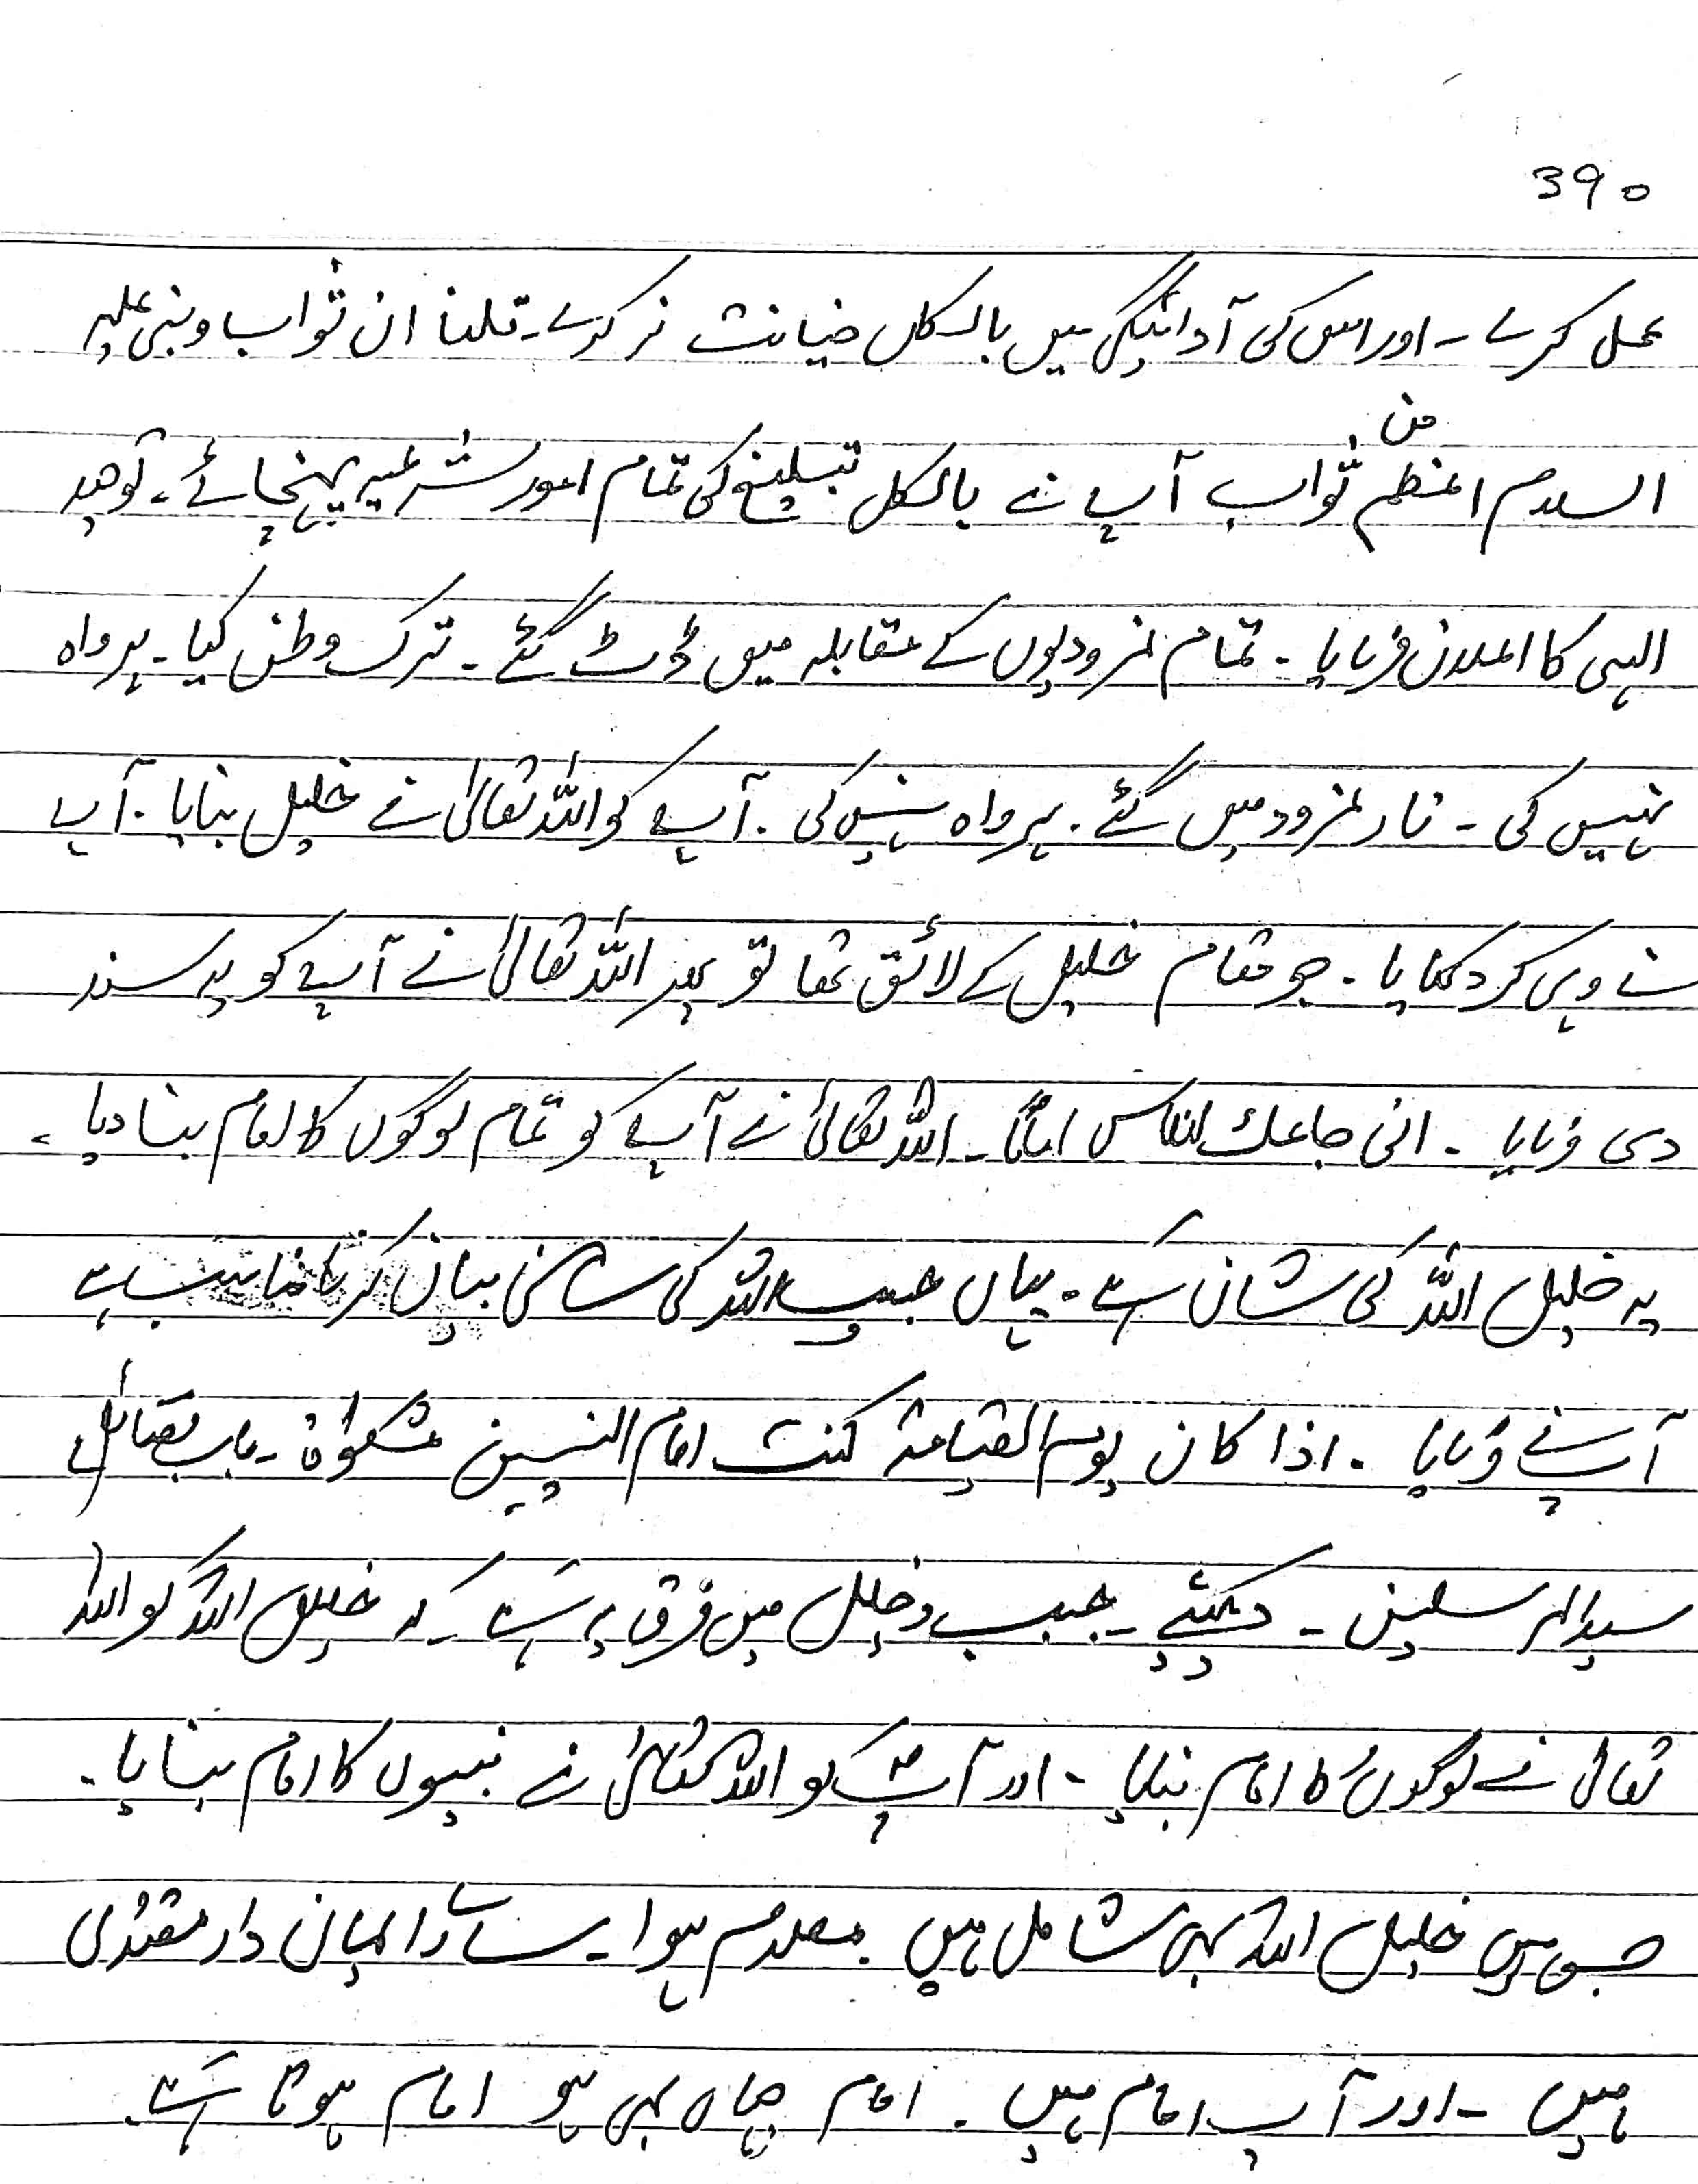 390
عمل کرے ۔ اور اس کی آدائیگی میں بالکل خیانت نہ کرے ۔ قلنا ان ثواب و نبی علیہ
السلام اعظم من ثواب آپ نے بالکل تبلیغ کی تمام امور شرعیہ پہنچائے ، توحید
الہی کا اعلان فرمایا ۔ تمام نمرودیوں کے مقابلہ میں ڈٹ گئے ۔ ترک وطن کیا ۔ پرواہ
نہیں کی ۔ نار نمرود میں گئے ۔ پرواہ نہیں کی ۔ آپ کو اللہ تعالیٰ نے خلیل بنایا ۔ آپ
نے وہی کر دکھایا ۔ جو مقام خلیل کے لائق تھا تو پھر اللہ تعالیٰ نے آپ کو یہ سند
دی فرمایا ۔ انی جاعلک للناس اماما ۔ اللہ تعالیٰ نے آپ کو تمام لوگوں کا امام بنا دیا ۔
یہ خلیل اللہ کی شان ہے ۔ یہاں حبیب اللہ کی شان بیان کرنا مناسب ہے
آپ نے فرمایا ۔ اذا کان یوم القیامۃ کنت امام النبیین مشکوٰۃ ۔ باب فضائل
سید المرسلین ۔ دیکھئے ۔ حبیب و خلیل میں فرق یہ ہے کہ خلیل اللہ کو اللہ
تعالیٰ نے لوگوں کا امام بنایا ۔ اور آپ کو اللہ تعالیٰ نے نبیوں کا امام بنایا ۔
جس میں خلیل اللہ بھی شامل ہیں ۔ معلوم ہوا ۔ سارے ایمان دار مقتدی
ہیں ۔ اور آپ امام ہیں ۔ امام جہاں بھی ہو امام ہوتا ہے ۔